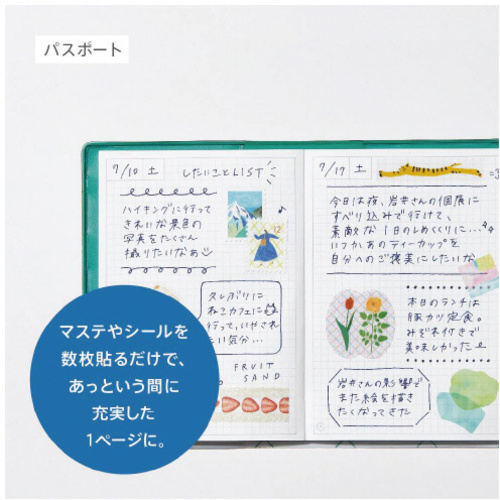 パスポート
7/10 土 したいことLIST
ハイキングに行って
きれいな景色の
写真をたくさん
撮りたいなぁ
久しぶりに
ねこカフェに
行って、いやされ
たい気分…
FRUIT
SAND
7/17 土
今日は夜、岩井さんの個展に
すべり込みで行けて、
素敵な1日のしめくくりに…
いつかあのティーカップを
自分へのご褒美にしたいな
本日のランチは
豚カツ定食。
みぞれ付きで
美味しかった
岩井さんの影響で
また絵を描き
たくなってきた
マステやシールを
数枚貼るだけで、
あっという間に
充実した
1ページに。